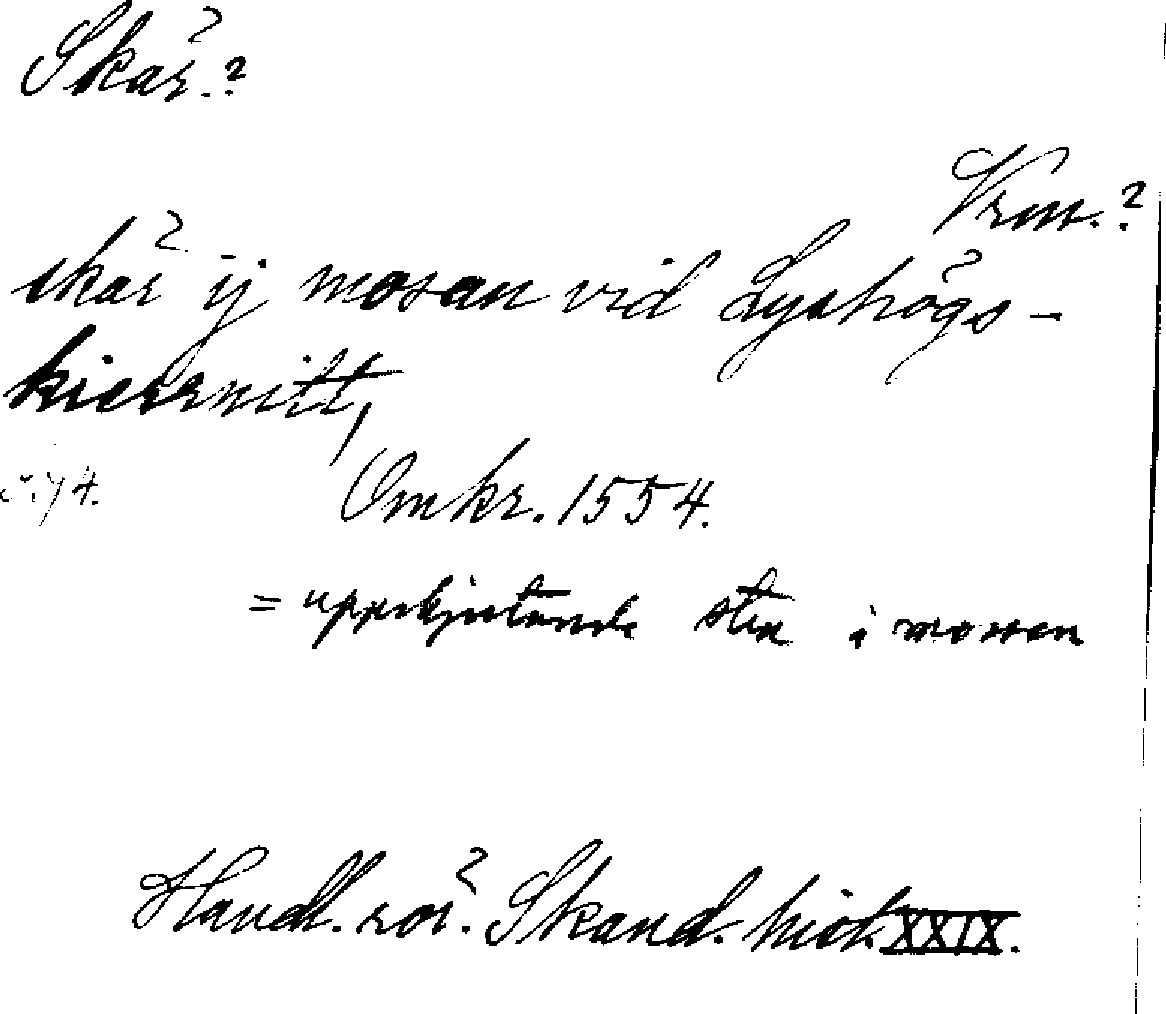 Skär.?
Vrm.?
skär ij mosan vid Lyshögs-
kiernitt,
74. Omkr. 1554.
= uppskjutande sten i mossen
Handl. rör. Skand. hist. XXIX.